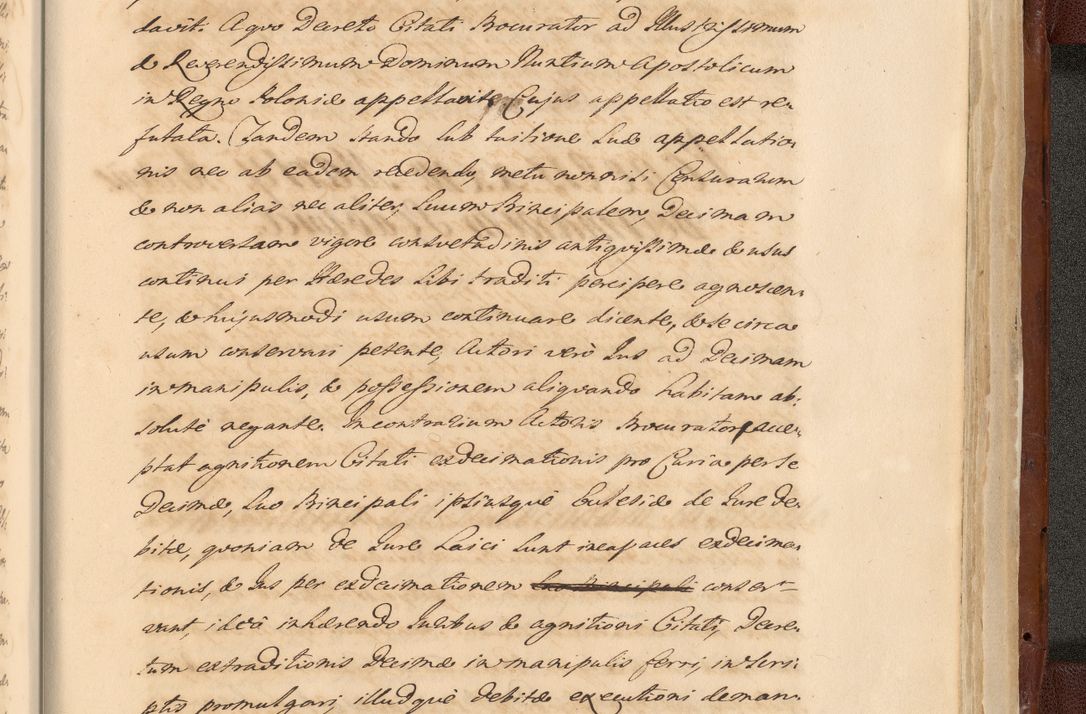 davit. A quo Decreto Citati Procurator ad Illustrissimum
& Reverendissimum Dominum Nuntium Apostolicum
in Regno Poloniæ appellavit. Cujus appellatio est re-
futata. Tandem stando sub tuitione suæ appellatio-
nis nec ab eadem recedendo, metu nonnisi Censurarum
& non alias nec aliter, suum Principalem, Decimam
controversam vigore consvetudinis antiquissimæ & usus
continui per Hæredes sibi traditi percipere agnoscen-
te, & hujusmodi usum continuare dicente, & se circa
usum conservari petente, Actori verò Jus ad Decimam
in manipulis, & possessionem aliquando habitam ab-
solutè negante. In contrarium Actoris Procurator acce-
ptat agnitionem Citati exdecimationis pro Curia per se
Decimæ, suo Principali ipsiusquè Ecclesiæ de Jure de-
bitæ, quoniam de Jure Laici sunt incapaces exdecima-
tionis, & Jus per exdecimationem suo Principali conser-
vant, ideò inhærendo Juribus & agnitioni Citati, Decre-
tum extraditionis Decimæ in manipulis ferri, in scri-
ptis promulgari, illudquè debitæ executioni deman-